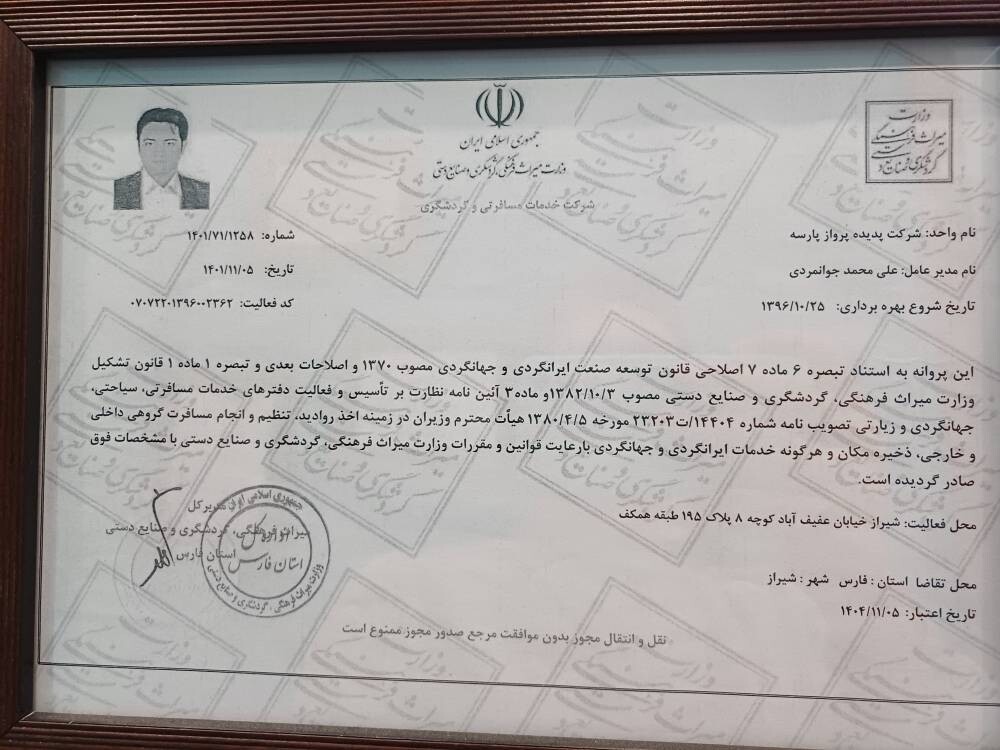 جمهوری اسلامی ایران
وزارت میراث فرهنگی، گردشگری و صنایع دستی
شرکت خدمات مسافرتی و گردشگری
وزارت
میراث فرهنگی
گردشگری و صنایع دستی
نام واحد: شرکت پدیده پرواز پارسه
نام مدیر عامل: علی محمد جوانمردی
تاریخ شروع بهره برداری: ۱۳۹۶/۱۰/۲۵
شماره: ۱۴۰۱/۷۱/۱۲۵۸
تاریخ: ۱۴۰۱/۱۱/۰۵
کد فعالیت: ۰۷۰۷۲۲۰۱۳۹۶۰۰۲۳۶۲
این پروانه به استناد تبصره ۶ ماده ۷ اصلاحی قانون توسعه صنعت ایرانگردی و جهانگردی مصوب ۱۳۷۰ و اصلاحات بعدی و تبصره ۱ ماده ۱ قانون تشکیل
وزارت میراث فرهنگی، گردشگری و صنایع دستی مصوب ۱۳۸۲/۱۰/۳و ماده۳ آئین نامه نظارت بر تأسیس و فعالیت دفترهای خدمات مسافرتی، سیاحتی،
جهانگردی و زیارتی تصویب نامه شماره ۱۴۴۰۴/ت۲۳۲۰۳ مورخه ۱۳۸۰/۴/۵ هیأت محترم وزیران در زمینه اخذ روادید، تنظیم و انجام مسافرت گروهی داخلی
و خارجی، ذخیره مکان و هرگونه خدمات ایرانگردی و جهانگردی بارعایت قوانین و مقررات وزارت میراث فرهنگی، گردشگری و صنایع دستی با مشخصات فوق
صادر گردیده است.
محل فعالیت: شیراز خیابان عفیف آباد کوچه ۸ پلاک ۱۹۵ طبقه همکف
محل تقاضا استان : فارس شهر : شیراز
تاریخ اعتبار: ۱۴۰۴/۱۱/۰۵
مدیرکل
میراث فرهنگی، گردشگری و صنایع دستی
استان فارس
جمهوری اسلامی ایران
استان فارس
وزارت میراث فرهنگی، گردشگری و صنایع دستی
نقل و انتقال مجوز بدون موافقت مرجع صدور مجوز ممنوع است